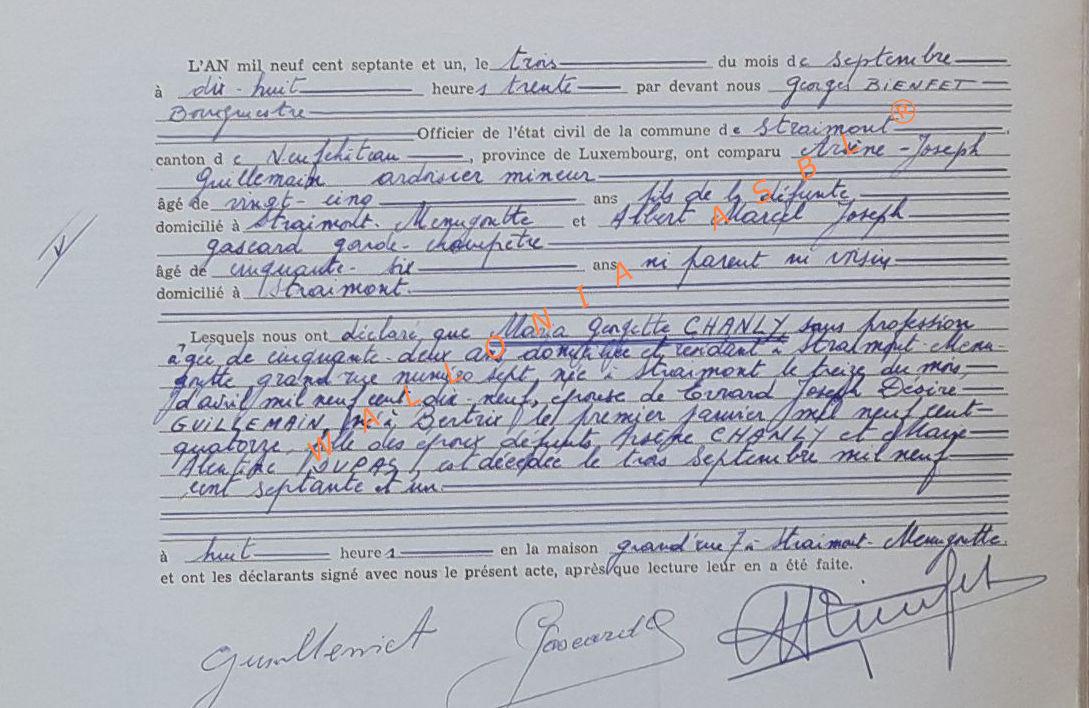 L'AN mil neuf cent septante et un, le trois du mois de septembre
à dix-huit heures trente par devant nous Georges BIENFET
Bourgmestre
Officier de l'état civil de la commune de Straimont
canton de Neufchâteau, province de Luxembourg, ont comparu Arsène-Joseph
Guillemain ardoisier mineur
âgé de vingt-cinq ans fils de la défunte
domicilié à Straimont-Menugoutte et Albert Marcel Joseph
gascard garde-champêtre
âgé de cinquante-six ans ni parent ni voisin
domicilié à Straimont.
Lesquels nous ont déclaré que Maria Georgette CHANLY sans profession
âgée de cinquante-deux ans domiciliée et résidant à Straimont-Menu-
goutte, grand rue numéro sept, née à Straimont le treize du mois
d'avril mil neuf cent dix-neuf, épouse de Joseph Désiré
GUILLEMAIN, né à Bertrix le premier janvier mil neuf cent
quatorze, fille des époux défunts Arsène CHANLY et Marie
DUPAS, est décédée le trois septembre mil neuf
cent septante et un.
à huit heures en la maison grand'rue 7 à Straimont-Menugoutte.
et ont les déclarants signé avec nous le présent acte, après que lecture leur en a été faite.
Gascard
WALLONIA ASBL ®